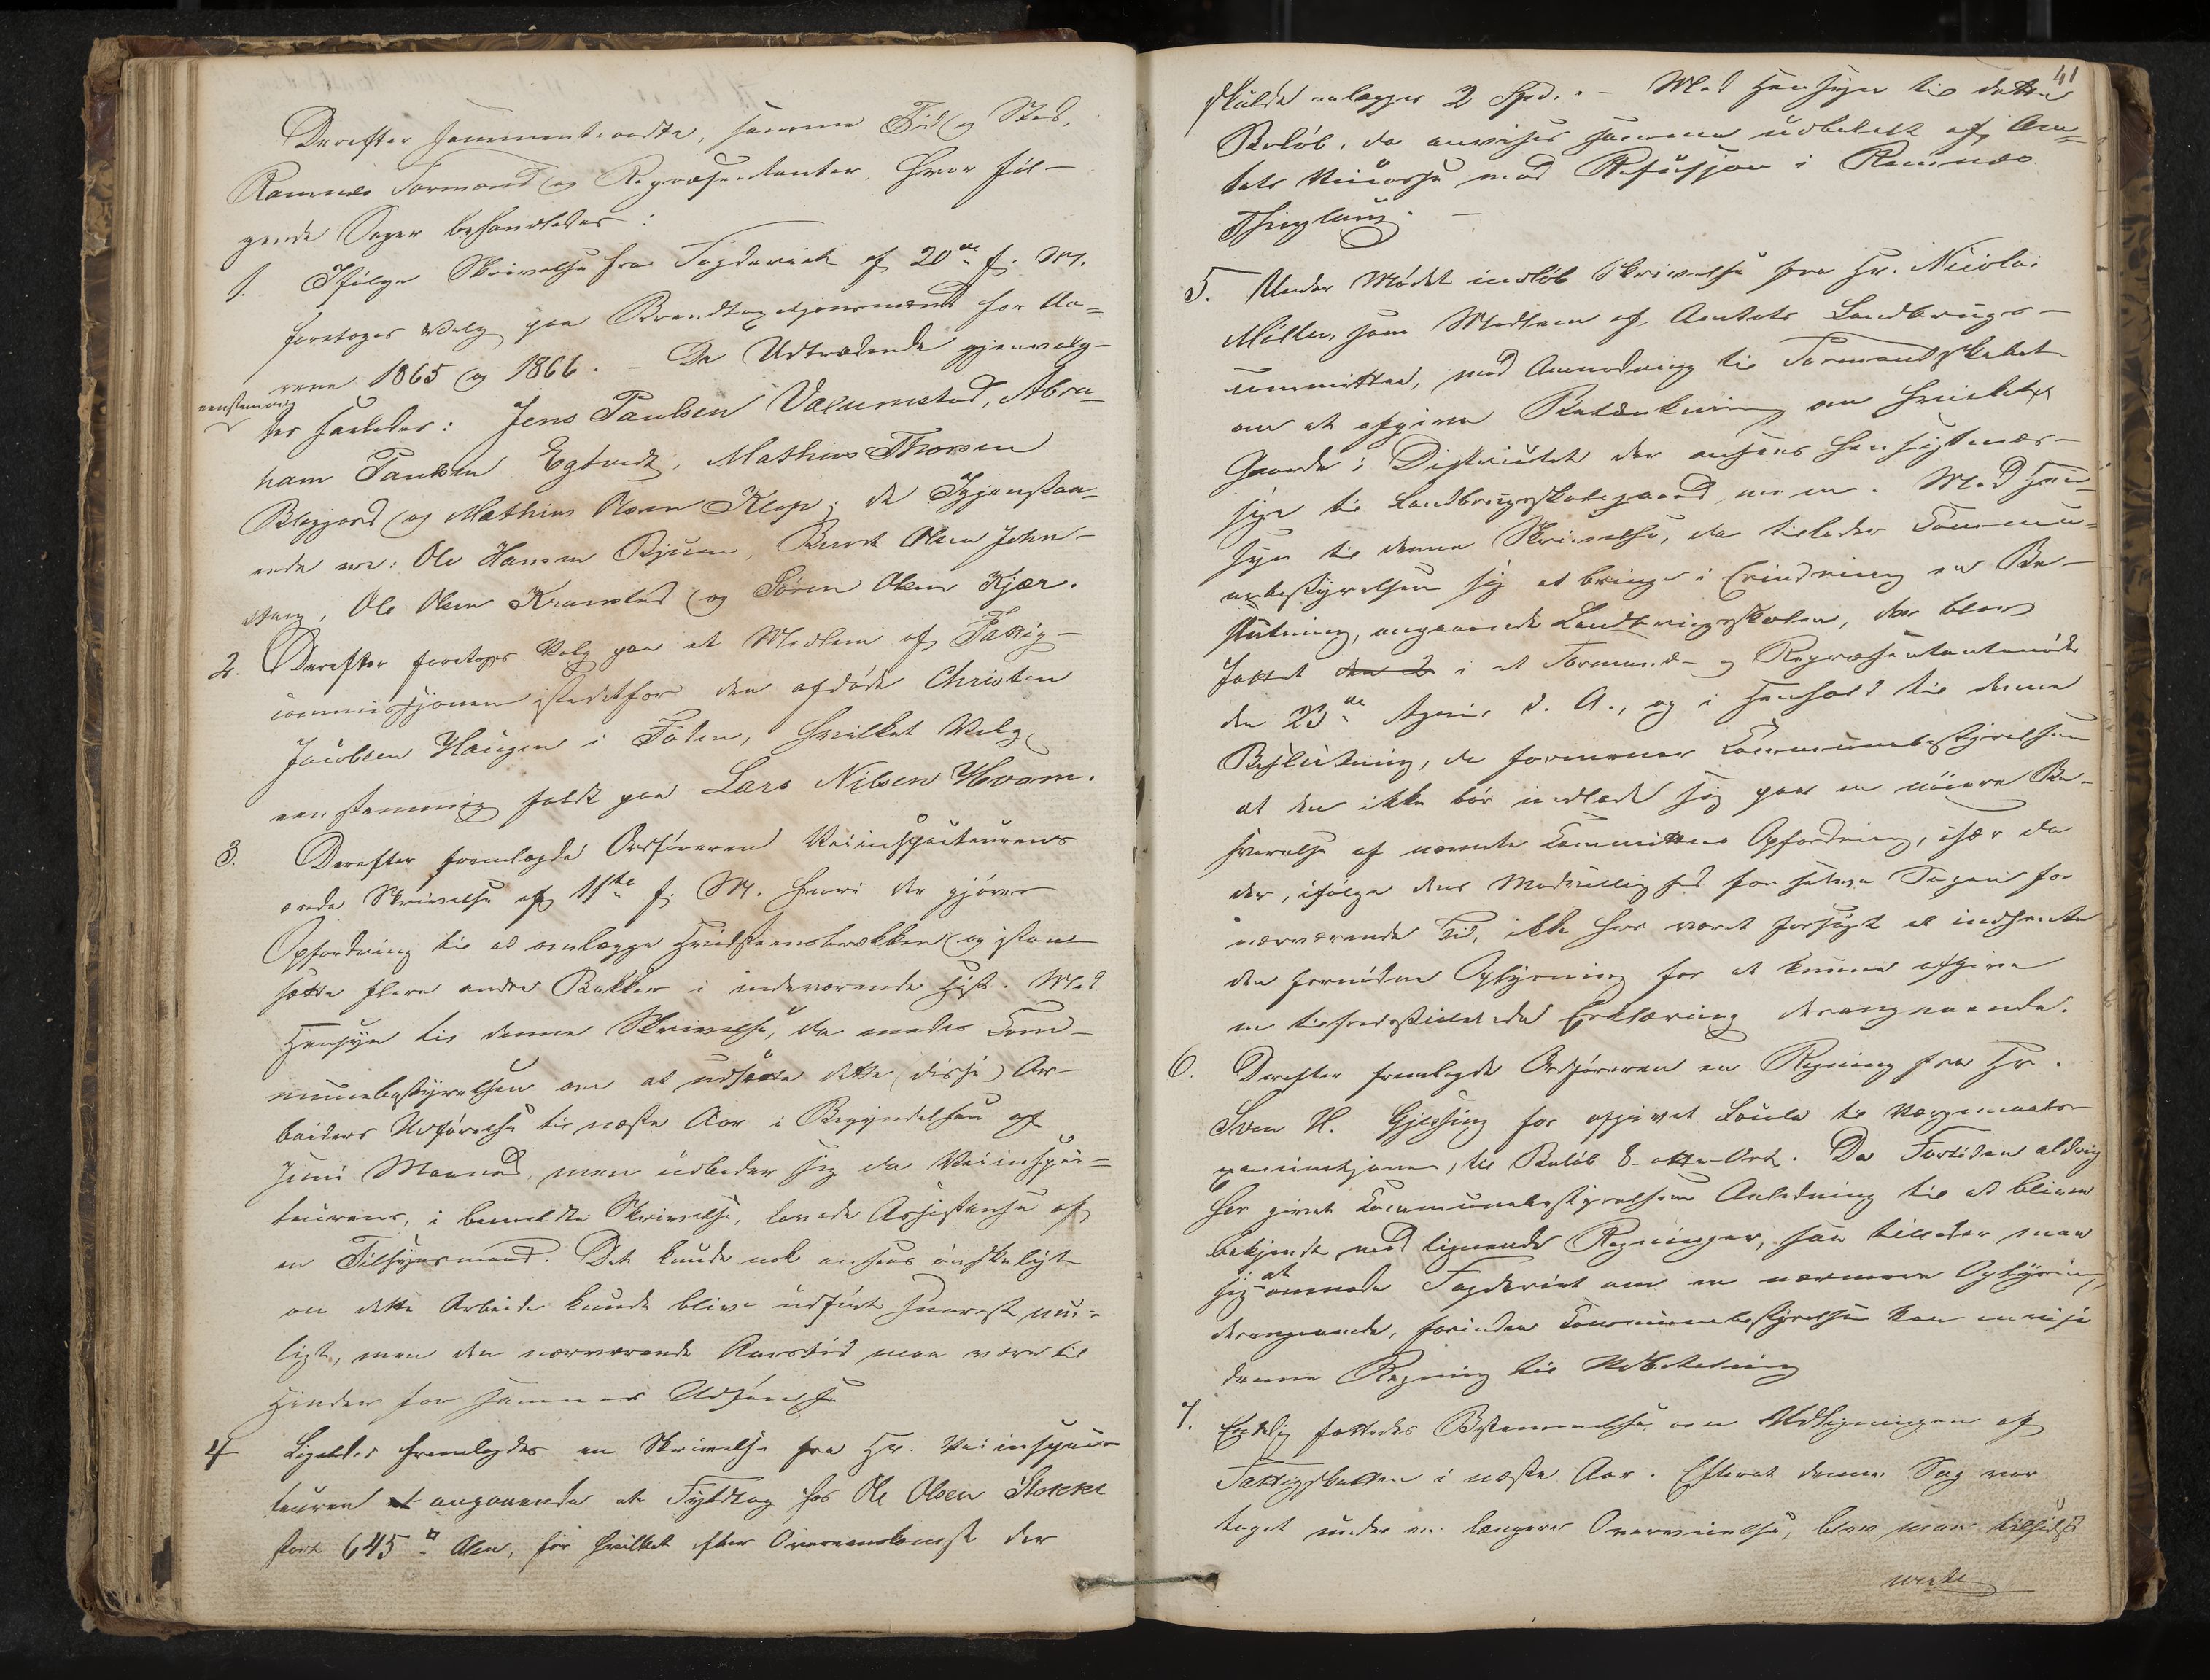 Derefter sammentraadte, samme Tid og Sted,
Ramnæs Formand og Repræsentanter, hvor føl-
gende Sager behandledes:
1. Ifølge Skrivelse fra Fogderiet af 20de f. M.
foretoges Valg paa Brandtaxationsmænd for Aa-
rene 1865 og 1866. - De Udtrædende gjenvalg-
eenstemmig
tes saaledes: Jens Paulsen Valumstad, Abra-
ham Paulsen Egtvedt, Mathias Thorsen
Berggaard og Mathias Olsen Klop; de Igjenstaa-
ende ere: Ole Hansen Bjune, Bernt Olsen John-
, Ole Olsen Kramstad og Søren Olsen Kjær.
2. Derefter foretoges Valg paa et Medlem af Fattig-
commissjonen istedetfor den afdøde Christen
Jacobsen Haugen i Foden, hvilket Valg
eenstemmig faldt paa Lars Nilsen Hvam.
3. Derefter fremlagde Ordføreren Veiinspecteurens
ærede Skrivelse af 11te f. M. hvori der gjøres
Opfordring til at omlægge Hvidsteensbrækken og istand-
sætte flere andre Bakker i indeværende Høst. Med
Hensyn til denne Skrivelse, da enedes Com-
munebestyrelsen om at udsætte dette (disse) Ar-
beiders Udførelse til næste Aar i Begyndelsen af
Juni Maaned, men udbeder sig da Veiinspec-
teurens, i bemeldte Skrivelse, lovede Assistanse af
en Tilsynsmand. Det kunde nok ansees ønskeligt
om dette Arbeide kunde blive udført snarest mu-
ligt, men den nærværende Aarstid maa være til
Hinder for sammes Udførelse
4 Ligeledes fremlagdes en Skrivelse fra Hr. Veiinspec-
teuren angaaende et Fyldtag hos Ole Olsen Stokke
stort 645 □ Alen, for hvilket efter Overeenskomst der
41
skulde erlægges 2 Spd. - Med Hensyn til dette
Beløb, da anvises samme udbetalt af Am-
tets Veicasse mod Refusjon i Ramnæs
Thinglaug. -
5. Under Mødet indløb Skrivelse fra Hr. Nicolai
Møller, som Medlem af Amtets Landbrugs-
committee, med Anmodning til Formandskabet
om at afgive Betænkning om hvilket
Gaarde i Districtet der ansees hensigtmæs-
sige til Landbrugsskolegaard m. m. Med Hen-
syn til denne Skrivelse, da tillader Commu-
nebestyrelsen sig at bringe i Erindring en Be-
slutning, angaaende Landbrugsskolen, der blev
fattet den 2 i et Formands- og Repræsentantmøde
den 23de April d. A., og i Henhold til denne
Beslutning, da formener Communebestyrelsen
at den ikke bør indlade sig paa en nøiere Be-
svarelse af nævnte Committees Opfordring, især da
der, ifølge dens Modvillighed for selve Sagen for
nærværende Tid, ikke har været forsøgt at indhente
den fornødne Oplysning for at kunne afgive
en tilfredsstillende Erklæring desangaaende.
6. Derefter fremlagde Ordføreren en Regning fra Hr.
Sven H. Gjessing for afgivet Locale til Værgemaals-
, til Beløb 8 - otte - Ort. Da Fortiden aldrig
har givet Communebestyrelsen Anledning til at blive
bekjendt med lignende Regninger, saa tillader man
sig at anmode Fogderiet om en nærmere Oplysning,
desangaaende, forinden Communebestyrelsen kan anvise
denne Regning til Udbetaling
7. Endelig fattedes Bestemmelse om Udligningen af
Fattigskatten i næste Aar. Efterat denne Sag var
taget under en længere Overveielse, blev man tilsidst